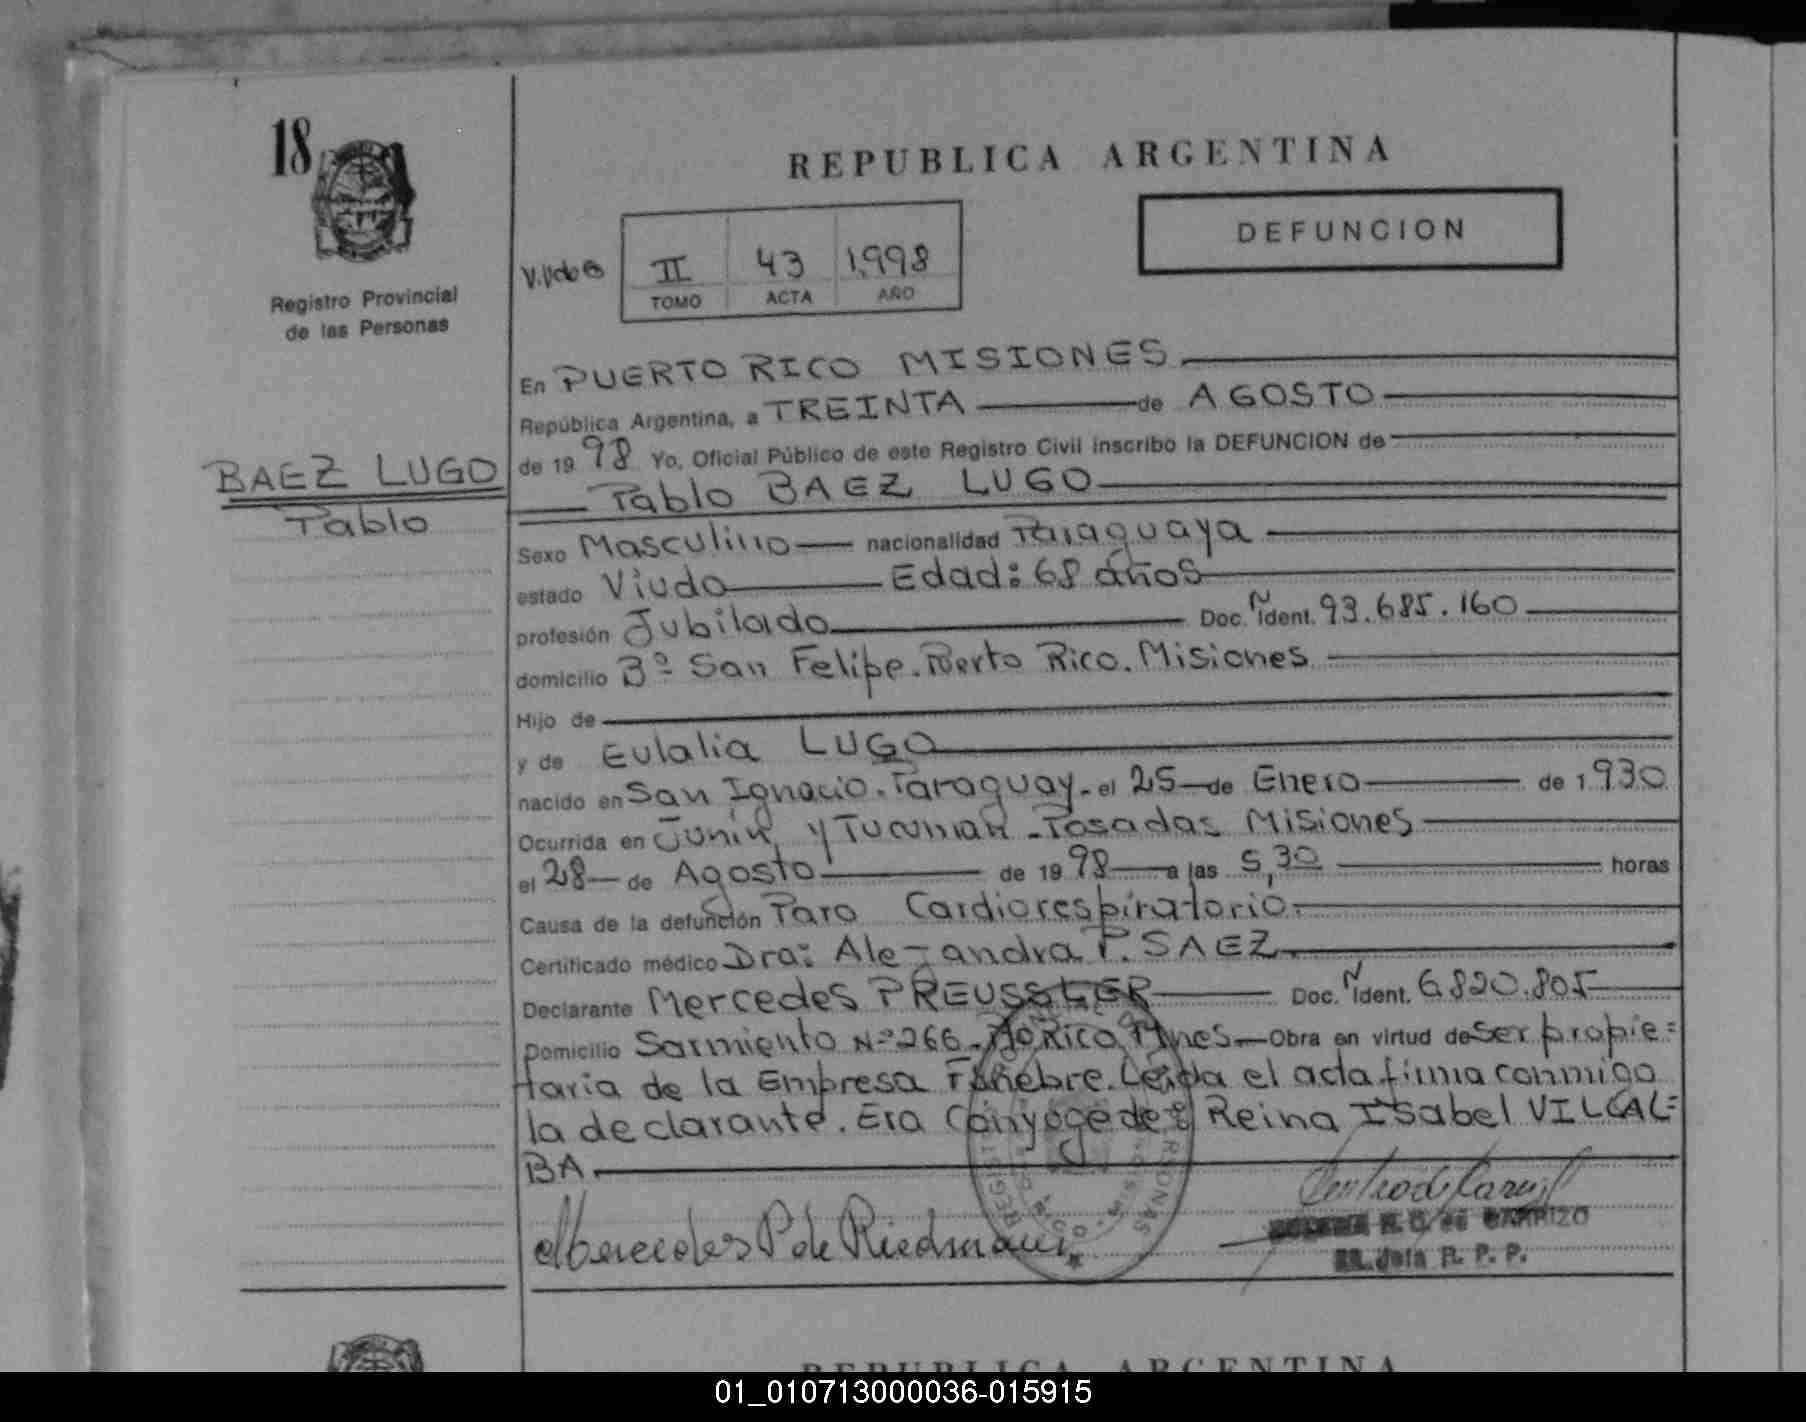 18
Registro Provincial
de las Personas
REPUBLICA ARGENTINA
DEFUNCION
II 43 1.998
TOMO ACTA AÑO
BAEZ LUGO
Pablo
En PUERTO RICO MISIONES
República Argentina, a TREINTA de AGOSTO
de 19 98 Yo, Oficial Público de este Registro Civil inscribo la DEFUNCION de
Pablo BAEZ LUGO
Sexo Masculino nacionalidad Paraguaya
estado Viudo Edad: 68 años
profesión Jubilado Doc. N Ident. 93.685.160
domicilio Bº San Felipe. Puerto Rico. Misiones
Hijo de
y de Eulalia LUGO
nacido en San Ignacio. Paraguay. el 25 de Enero de 1.930
Ocurrida en Junín y Tucuman - Posadas Misiones
el 28 de Agosto de 19 98 a las 5,30 horas
Causa de la defunción Paro Cardiorespiratorio.
Certificado médico Dra: Alejandra P. SAEZ
Declarante Mercedes PREUSSLER Doc. N Ident. 6.820.805
Domicilio Sarmiento Nº 266 - Pto Rico Mnes. Obra en virtud de Ser propie=
taria de la Empresa Fúnebre. Leída el acta firma conmigo
la declarante. Era Cónyoge de: Reina Isabel VILLAL=
BA
Mercedes P de Riedmaier
R. C. de CARRIZO
Jefa R. P. P.
REPUBLICA ARGENTINA
01_010713000036-015915